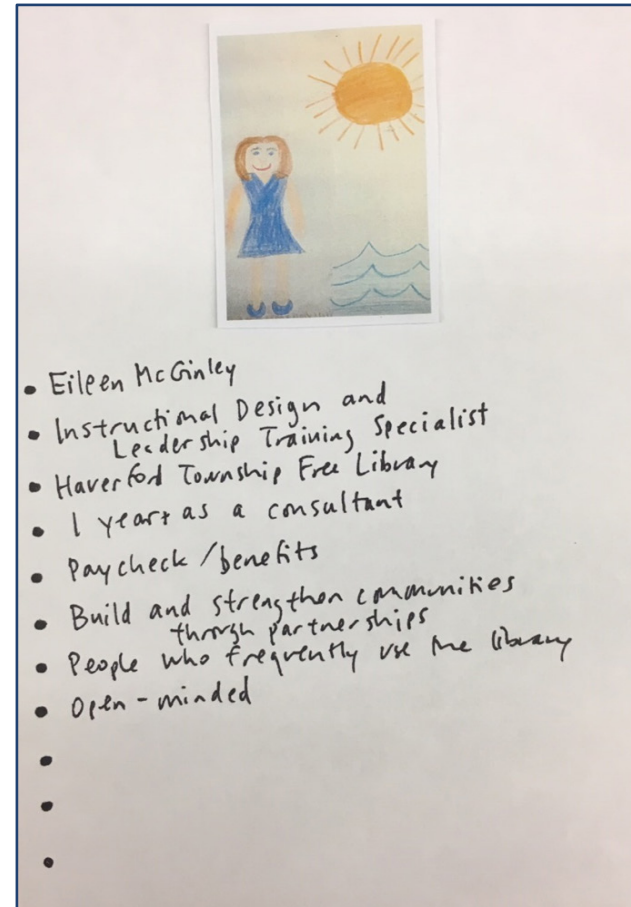 • Eileen McGinley
• Instructional Design and
Leadership Training Specialist
• Haverford Township Free Library
• 1 year+ as a consultant
• Paycheck/benefits
• Build and strengthen communities
through partnerships
• People who frequently use the library
• Open-minded
•
•
•